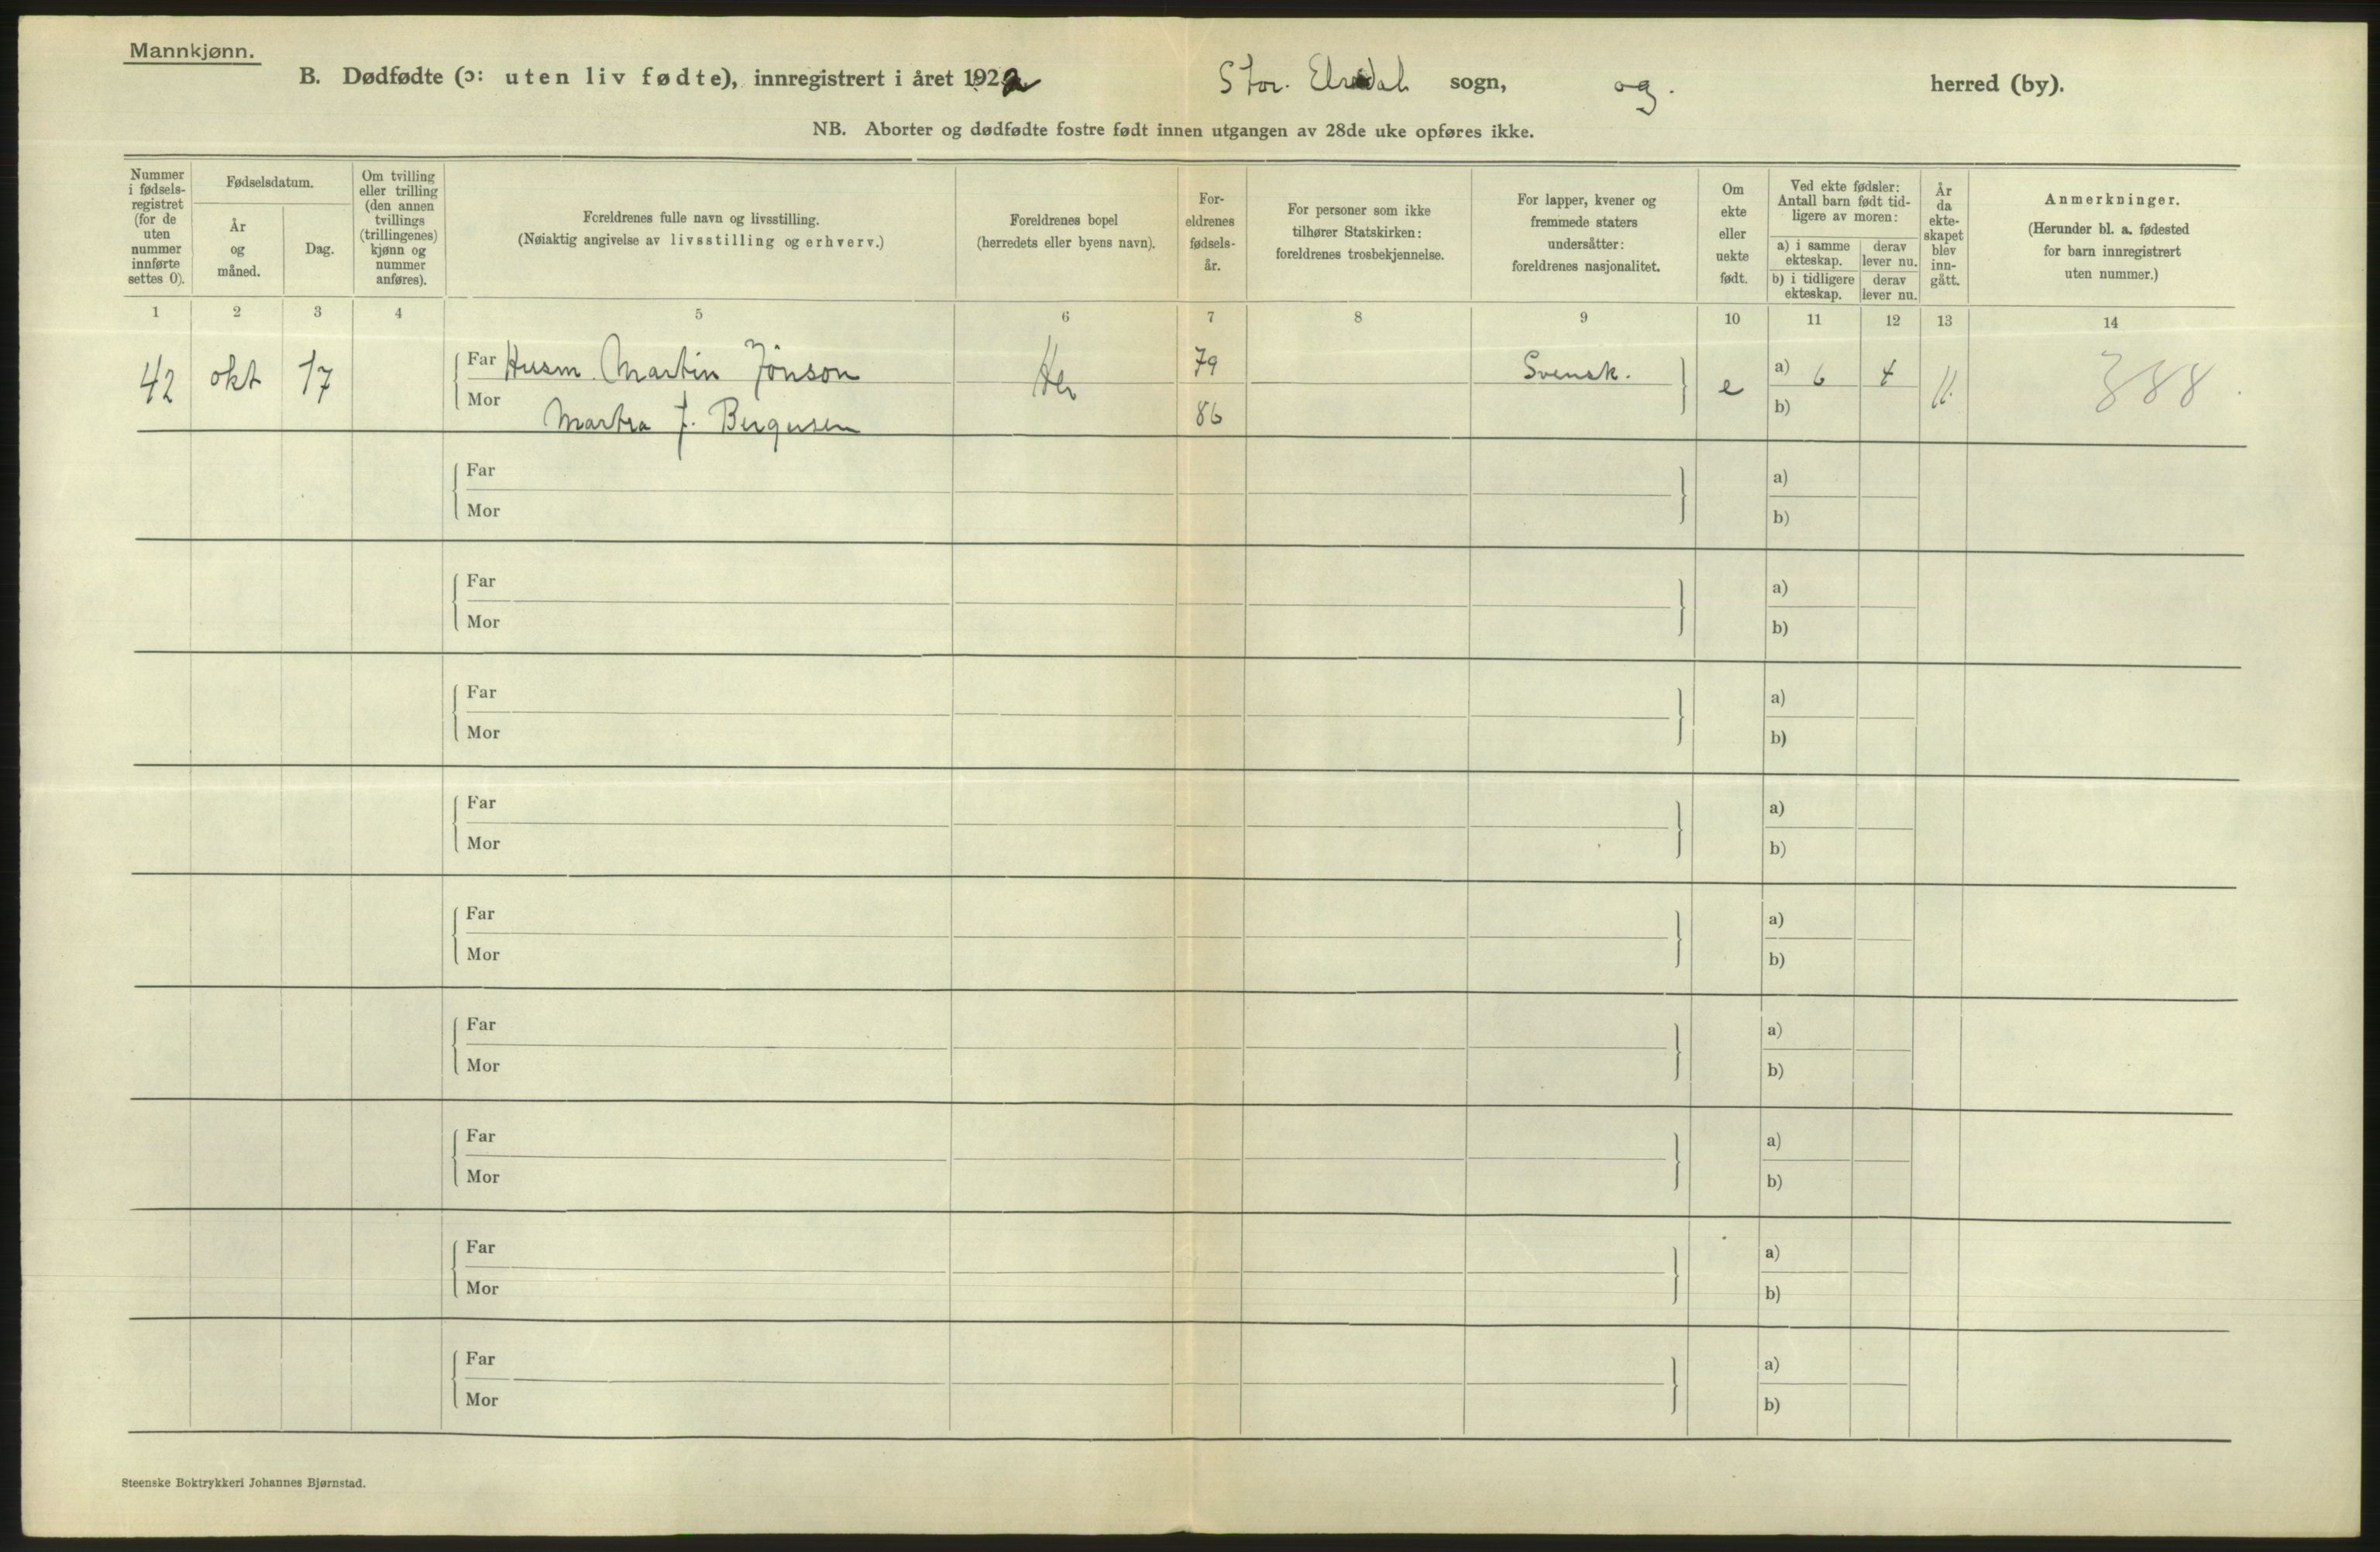 Mannkjønn.
B. Dødfødte (ɔ: uten liv fødte), innregistrert i året 1922 Stor. Elvedal sogn, og. herred (by).
NB. Aborter og dødfødte fostre født innen utgangen av 28de uke opføres ikke.
Nummer i fødsels-registret (for de uten nummer innførte settes 0).
Fødselsdatum.
År og måned.
Dag.
Om tvilling eller trilling (den annen tvillings (trillingenes) kjønn og nummer anføres).
Foreldrenes fulle navn og livsstilling.
(Nøiaktig angivelse av livsstilling og erhverv.)
Foreldrenes bopel
(herredets eller byens navn).
For-eldrenes fødsels-år.
For personer som ikke tilhører Statskirken: foreldrenes trosbekjennelse.
For lapper, kvener og fremmede staters undersåtter: foreldrenes nasjonalitet.
Om ekte eller uekte født.
Ved ekte fødsler: Antall barn født tid-ligere av moren:
a) i samme ekteskap.
derav lever nu.
b) i tidligere ekteskap.
derav lever nu.
År da ekte-skapet blev inn-gått.
Anmerkninger.
(Herunder bl. a. fødested for barn innregistrert uten nummer.)
1 2 3 4 5 6 7 8 9 10 11 12 13 14
42 okt 17 Far Husm. Martin Jönson Her 79 Svensk. e a) 6 4 11. 388
Mor Martha J. Bergersen 86 b)
Far a)
Mor b)
Far a)
Mor b)
Far a)
Mor b)
Far a)
Mor b)
Far a)
Mor b)
Far a)
Mor b)
Far a)
Mor b)
Far a)
Mor b)
Far a)
Mor b)
Steenske Boktrykkeri Johannes Bjørnstad.